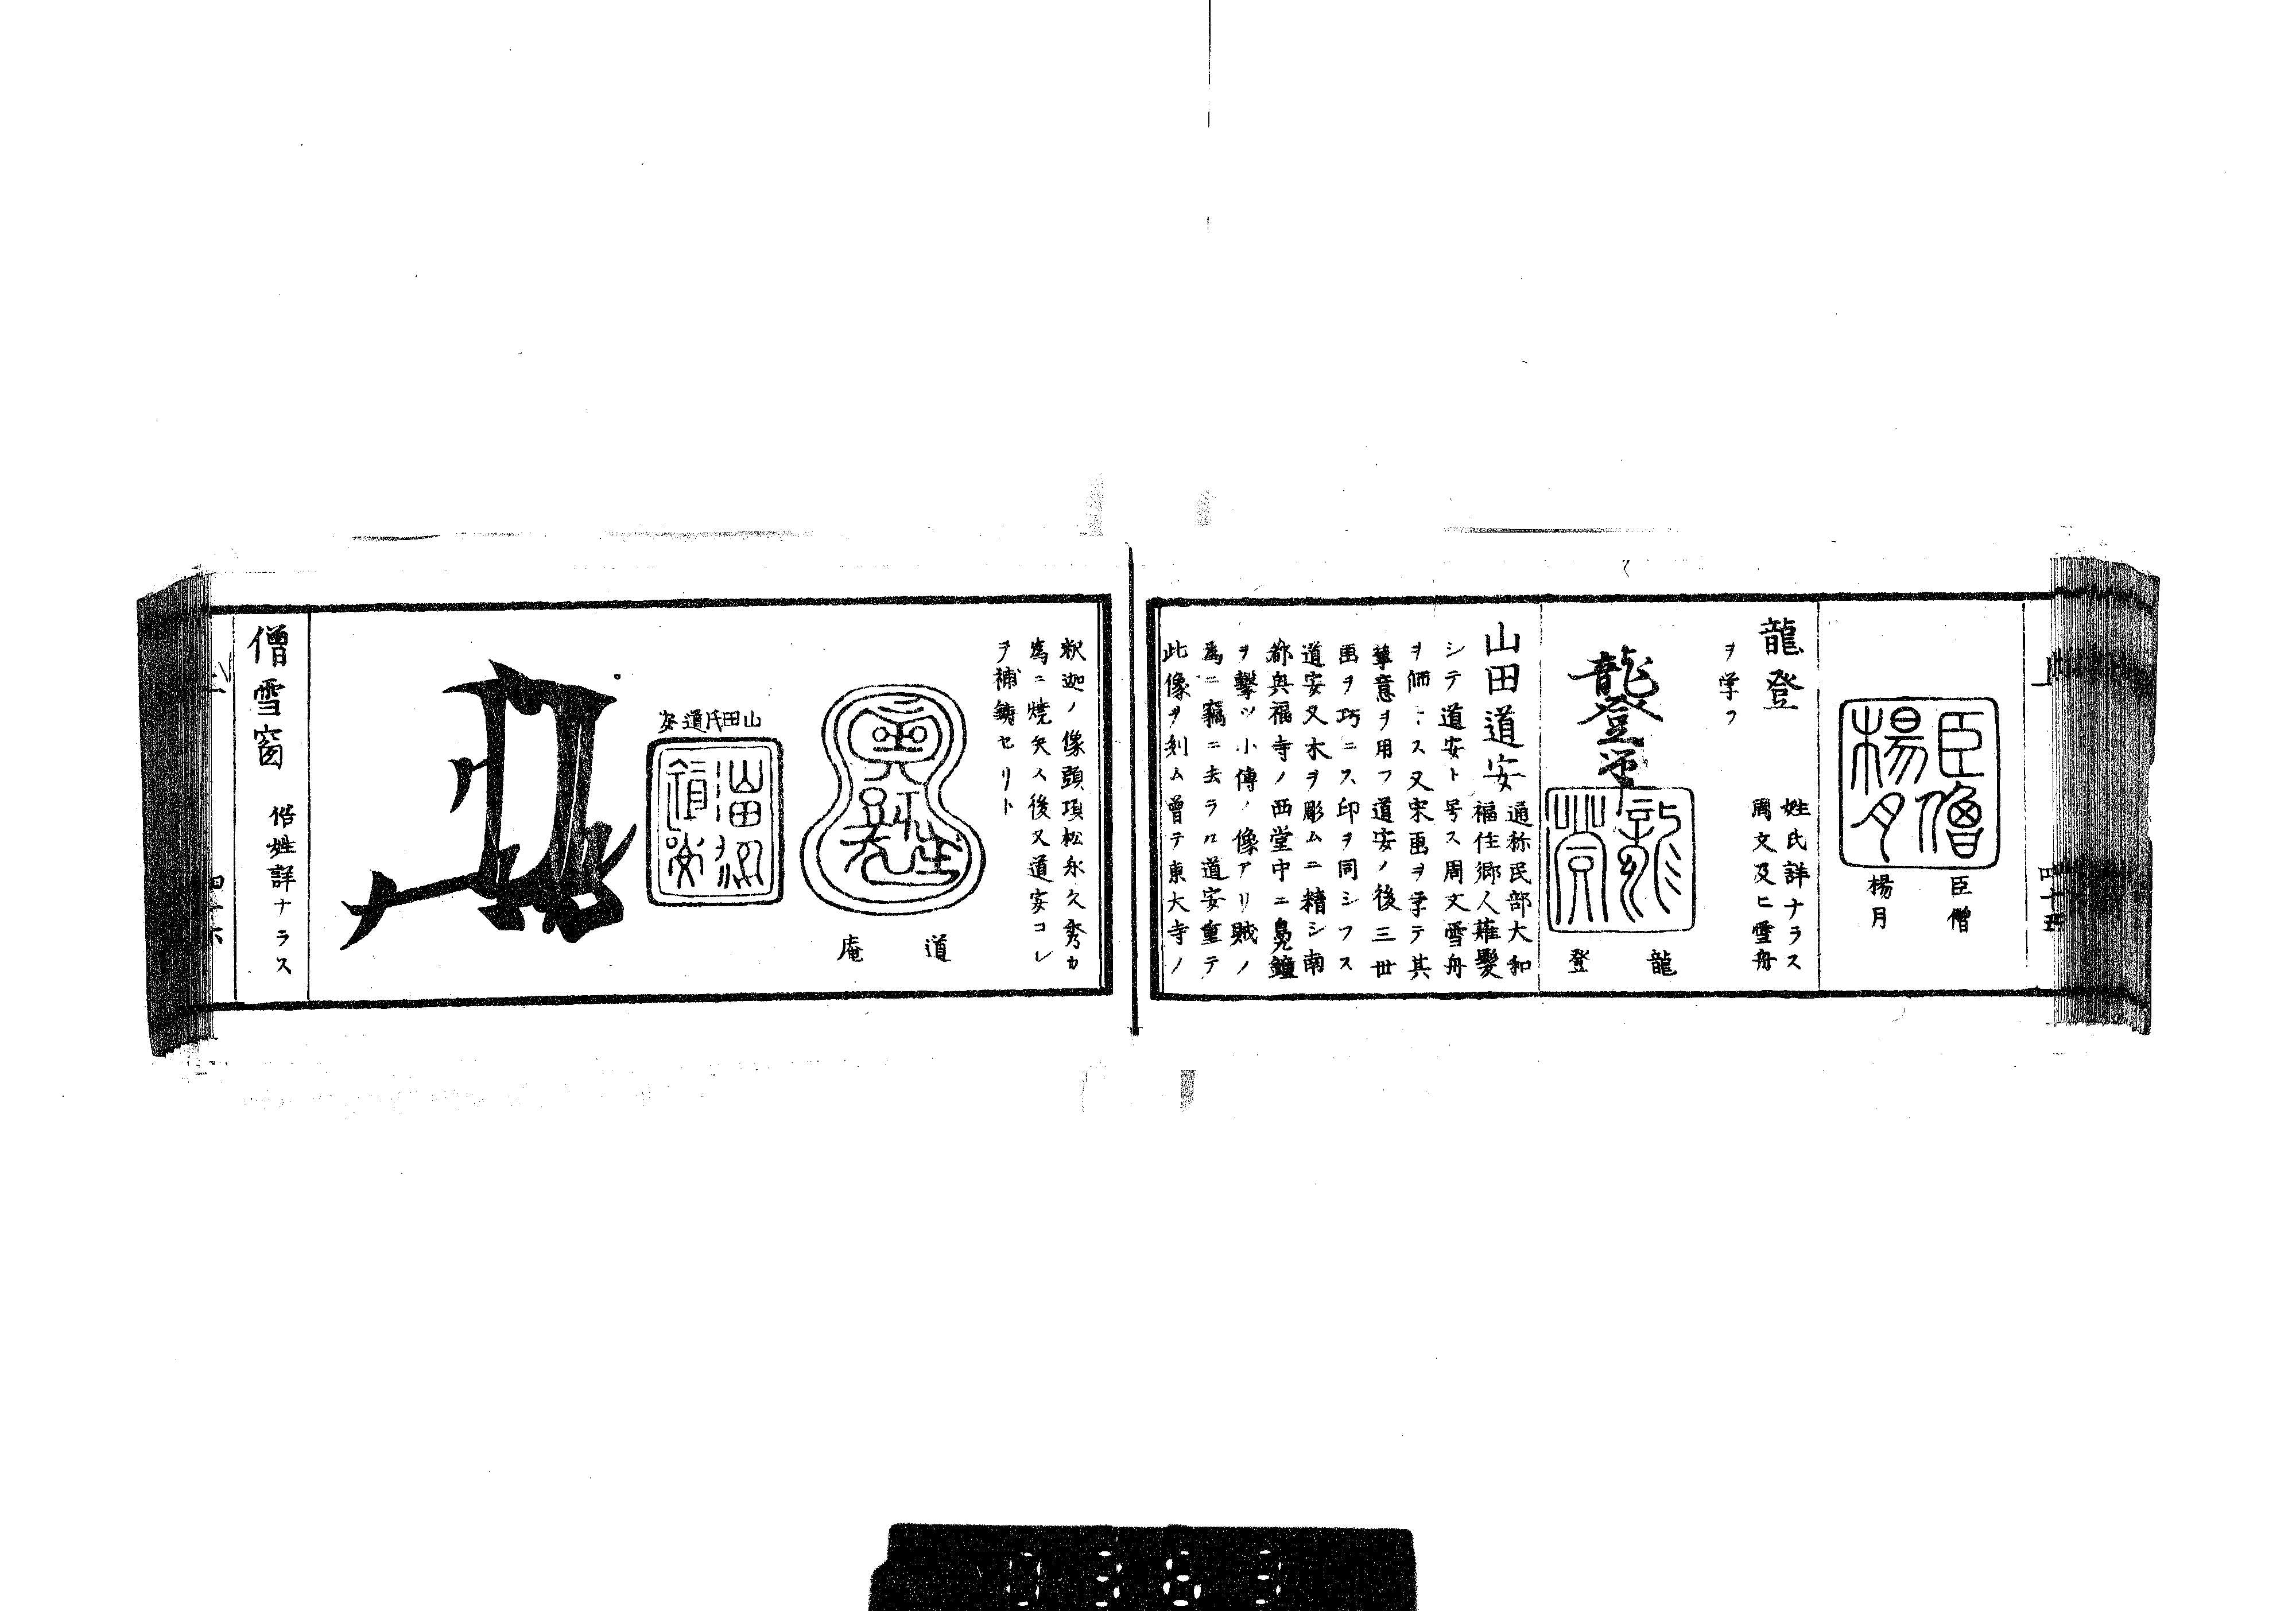 上
四十五
臣僧
楊月
臣僧
楊月
龍登
姓氏詳ナラス
周文及ヒ雪舟
ヲ学フ
龍登筆
龍
登
山田道安
通称民部大和
福住郷人薙髪
シテ道安ト号ス周文雪舟
ヲ師トス又宋画ヲ学テ其
筆意ヲ用フ道安ノ後三世
画ヲ巧ニス印ヲ同シフス
道安又木ヲ彫ムニ精シ南
都興福寺ノ西堂中ニ鳧鐘
ヲ撃ツ小僧ノ像アリ賊ノ
為ニ竊ニ去ラル道安重テ
此像ヲ刻ム曽テ東大寺ノ
釈迦ノ像頭項松永久秀カ
為ニ焼失ス後又道安コレ
ヲ補鋳セリト
道
庵
山田氏道安
僧雪窗
俗姓詳ナラス
上
四十六
0363